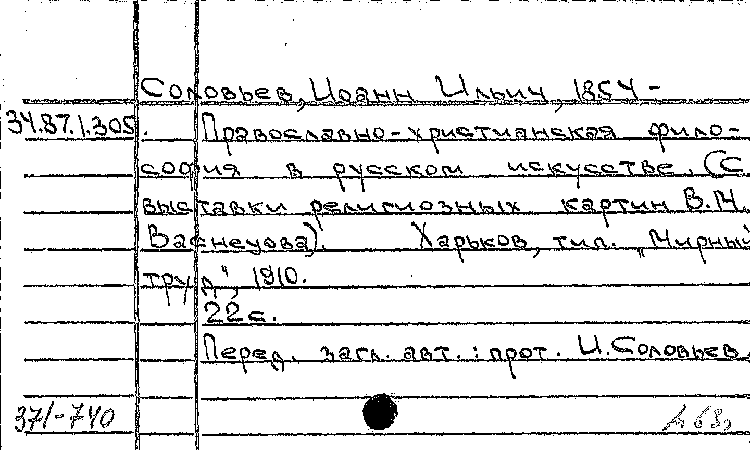 Соловьев, Иоанн Ильич, 1854 -
34.87.1.305. Православно-христианская фило-
софия в русском искусстве. (С
выставки религиозных картин В.М.
Васнецова). Харьков, тип. „Мирный
труд", 1910.
22 с.
Перед. загл. авт. : прот. И. Соловьев.
371-740